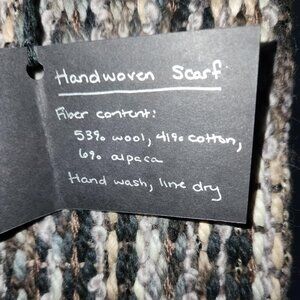 Handwoven Scarf
Fiber content:
53% wool, 41% cotton,
6% alpaca
Hand wash, line dry